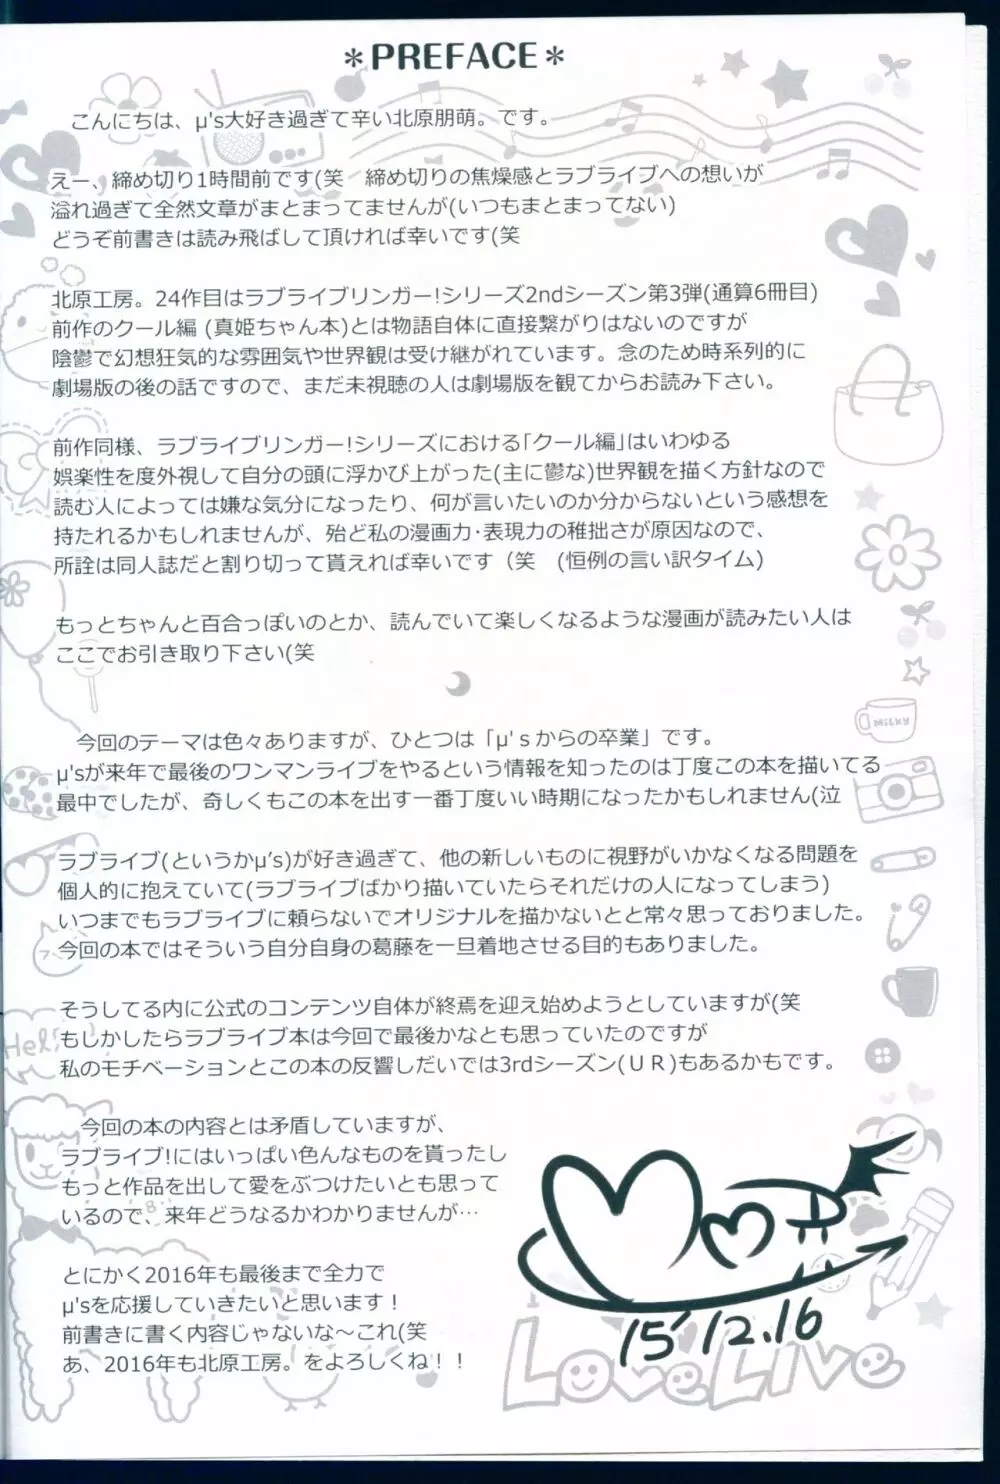 *PREFACE*
こんにちは、μ's大好き過ぎて辛い北原朋萌。です。
えー、締め切り1時間前です(笑　締め切りの焦燥感とラブライブへの想いが
溢れ過ぎて全然文章がまとまってませんが(いつもまとまってない)
どうぞ前書きは読み飛ばして頂ければ幸いです(笑
北原工房。24作目はラブライブリンガー!シリーズ2ndシーズン第3弾(通算6冊目)
前作のクール編 (真姫ちゃん本)とは物語自体に直接繋がりはないのですが
陰鬱で幻想狂気的な雰囲気や世界観は受け継がれています。念のため時系列的に
劇場版の後の話ですので、まだ未視聴の人は劇場版を観てからお読み下さい。
前作同様、ラブライブリンガー!シリーズにおける「クール編」はいわゆる
娯楽性を度外視して自分の頭に浮かび上がった(主に鬱な)世界観を描く方針なので
読む人によっては嫌な気分になったり、何が言いたいのか分からないという感想を
持たれるかもしれませんが、殆ど私の漫画力・表現力の稚拙さが原因なので、
所詮は同人誌だと割り切って貰えれば幸いです（笑　(恒例の言い訳タイム)
もっとちゃんと百合っぽいのとか、読んでいて楽しくなるような漫画が読みたい人は
ここでお引き取り下さい(笑
今回のテーマは色々ありますが、ひとつは「μ'ｓからの卒業」です。
μ'sが来年で最後のワンマンライブをやるという情報を知ったのは丁度この本を描いてる
最中でしたが、奇しくもこの本を出す一番丁度いい時期になったかもしれません(泣
ラブライブ(というかμ's)が好き過ぎて、他の新しいものに視野がいかなくなる問題を
個人的に抱えていて(ラブライブばかり描いていたらそれだけの人になってしまう)
いつまでもラブライブに頼らないでオリジナルを描かないとと常々思っておりました。
今回の本ではそういう自分自身の葛藤を一旦着地させる目的もありました。
そうしてる内に公式のコンテンツ自体が終焉を迎え始めようとしていますが(笑
もしかしたらラブライブ本は今回で最後かなとも思っていたのですが
私のモチベーションとこの本の反響しだいでは3rdシーズン(ＵＲ)もあるかもです。
今回の本の内容とは矛盾していますが、
ラブライブ!にはいっぱい色んなものを貰ったし
もっと作品を出して愛をぶつけたいとも思って
いるので、来年どうなるかわかりませんが…
とにかく2016年も最後まで全力で
μ'sを応援していきたいと思います！
前書きに書く内容じゃないな～これ(笑
あ、2016年も北原工房。をよろしくね！！
15' 12.16
LoveLive
MILKY